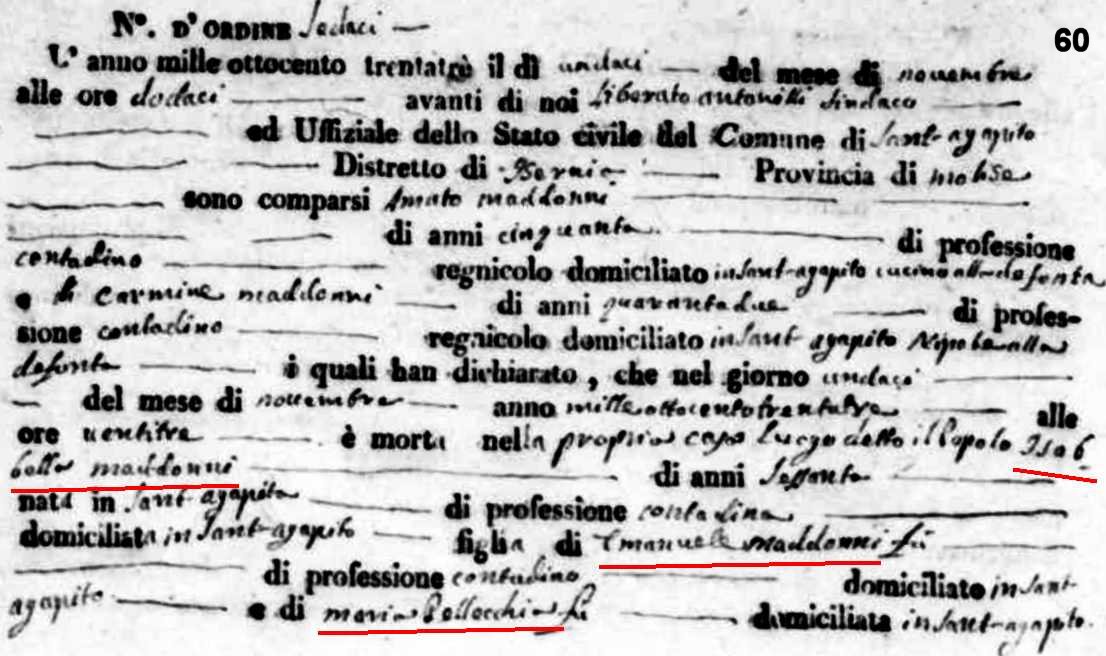 60
N°. D'ORDINE Sedaci
L'anno mille ottocento trentatrè il dì undaci del mese di novembre
alle ore dodaci avanti di noi Liberato Antonilli Sindaco
ed Uffiziale dello Stato civile del Comune di Sant-agapito
Distretto di Isernia Provincia di molise
sono comparsi Amato maddonni
di anni cinquanta di professione
contadino regnicolo domiciliato in Sant-agapito cucino alla defonta
e di Carmine maddonni di anni quarantadue di profes-
sione contadino regnicolo domiciliato in Sant agapito Nipote alla
defonta i quali han dichiarato, che nel giorno undaci
del mese di novembre anno mille ottocento trentatre alle
ore ventitre è morta nella propria casa luogo detto il Popolo Isab
bella maddonni di anni Sessanta
nata in Sant agapito di professione contadina
domiciliata in Sant-agapito figlia di Emanuele maddonni fù
di professione contadino domiciliato in Sant
agapito e di maria Pellecchia fù domiciliata in Sant-agapito.